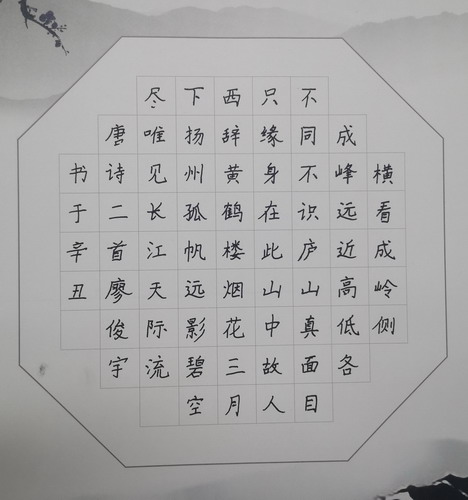 横看成岭侧
成峰远近高低各
不同不识庐山真面目
只缘身在此山中故人
西辞黄鹤楼烟花三月
下扬州孤帆远影碧空
尽唯见长江天际流
唐诗二首廖俊宇
书于辛丑